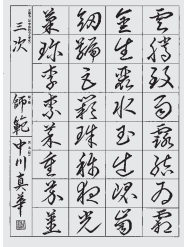 雲騰致雨露結為霜
金生麗水玉出崑岡
劍號巨闕珠稱夜光
菓珍李柰菜重芥薑
三次 師範 中川真華